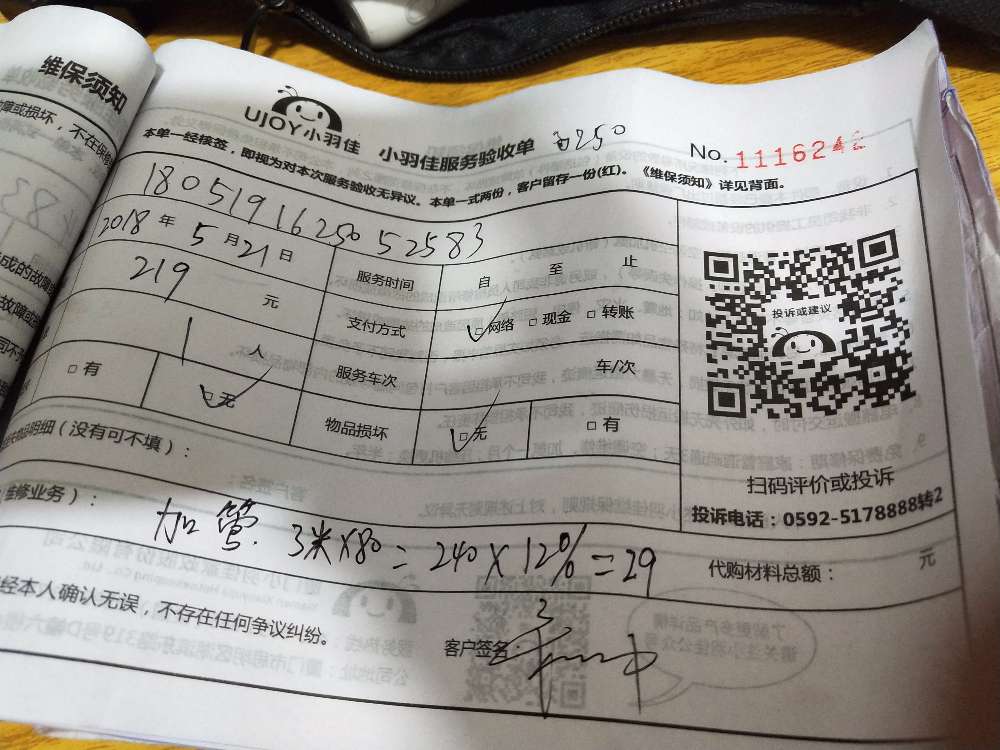 维保须知
障或损坏，不在保修
UJOY小羽佳 小羽佳服务验收单
No. 11162
本单一经续签，即视为对本次服务验收无异议。本单一式两份，客户留存一份(红)。《维保须知》详见背面。
180519162505 2583
2018年5月21日 服务时间 自 至 止
219 元 支付方式 □网络 □现金 □转账
1 人 服务车次 车/次
□有 □无 物品损坏 □无 □有
投诉或建议
扫码评价或投诉
投诉电话：0592-5178888转2
品明细（没有可不填）：
维修业务）：
加管 3米×80=240×12%=29
代购材料总额： 元
经本人确认无误，不存在任何争议纠纷。
客户签名